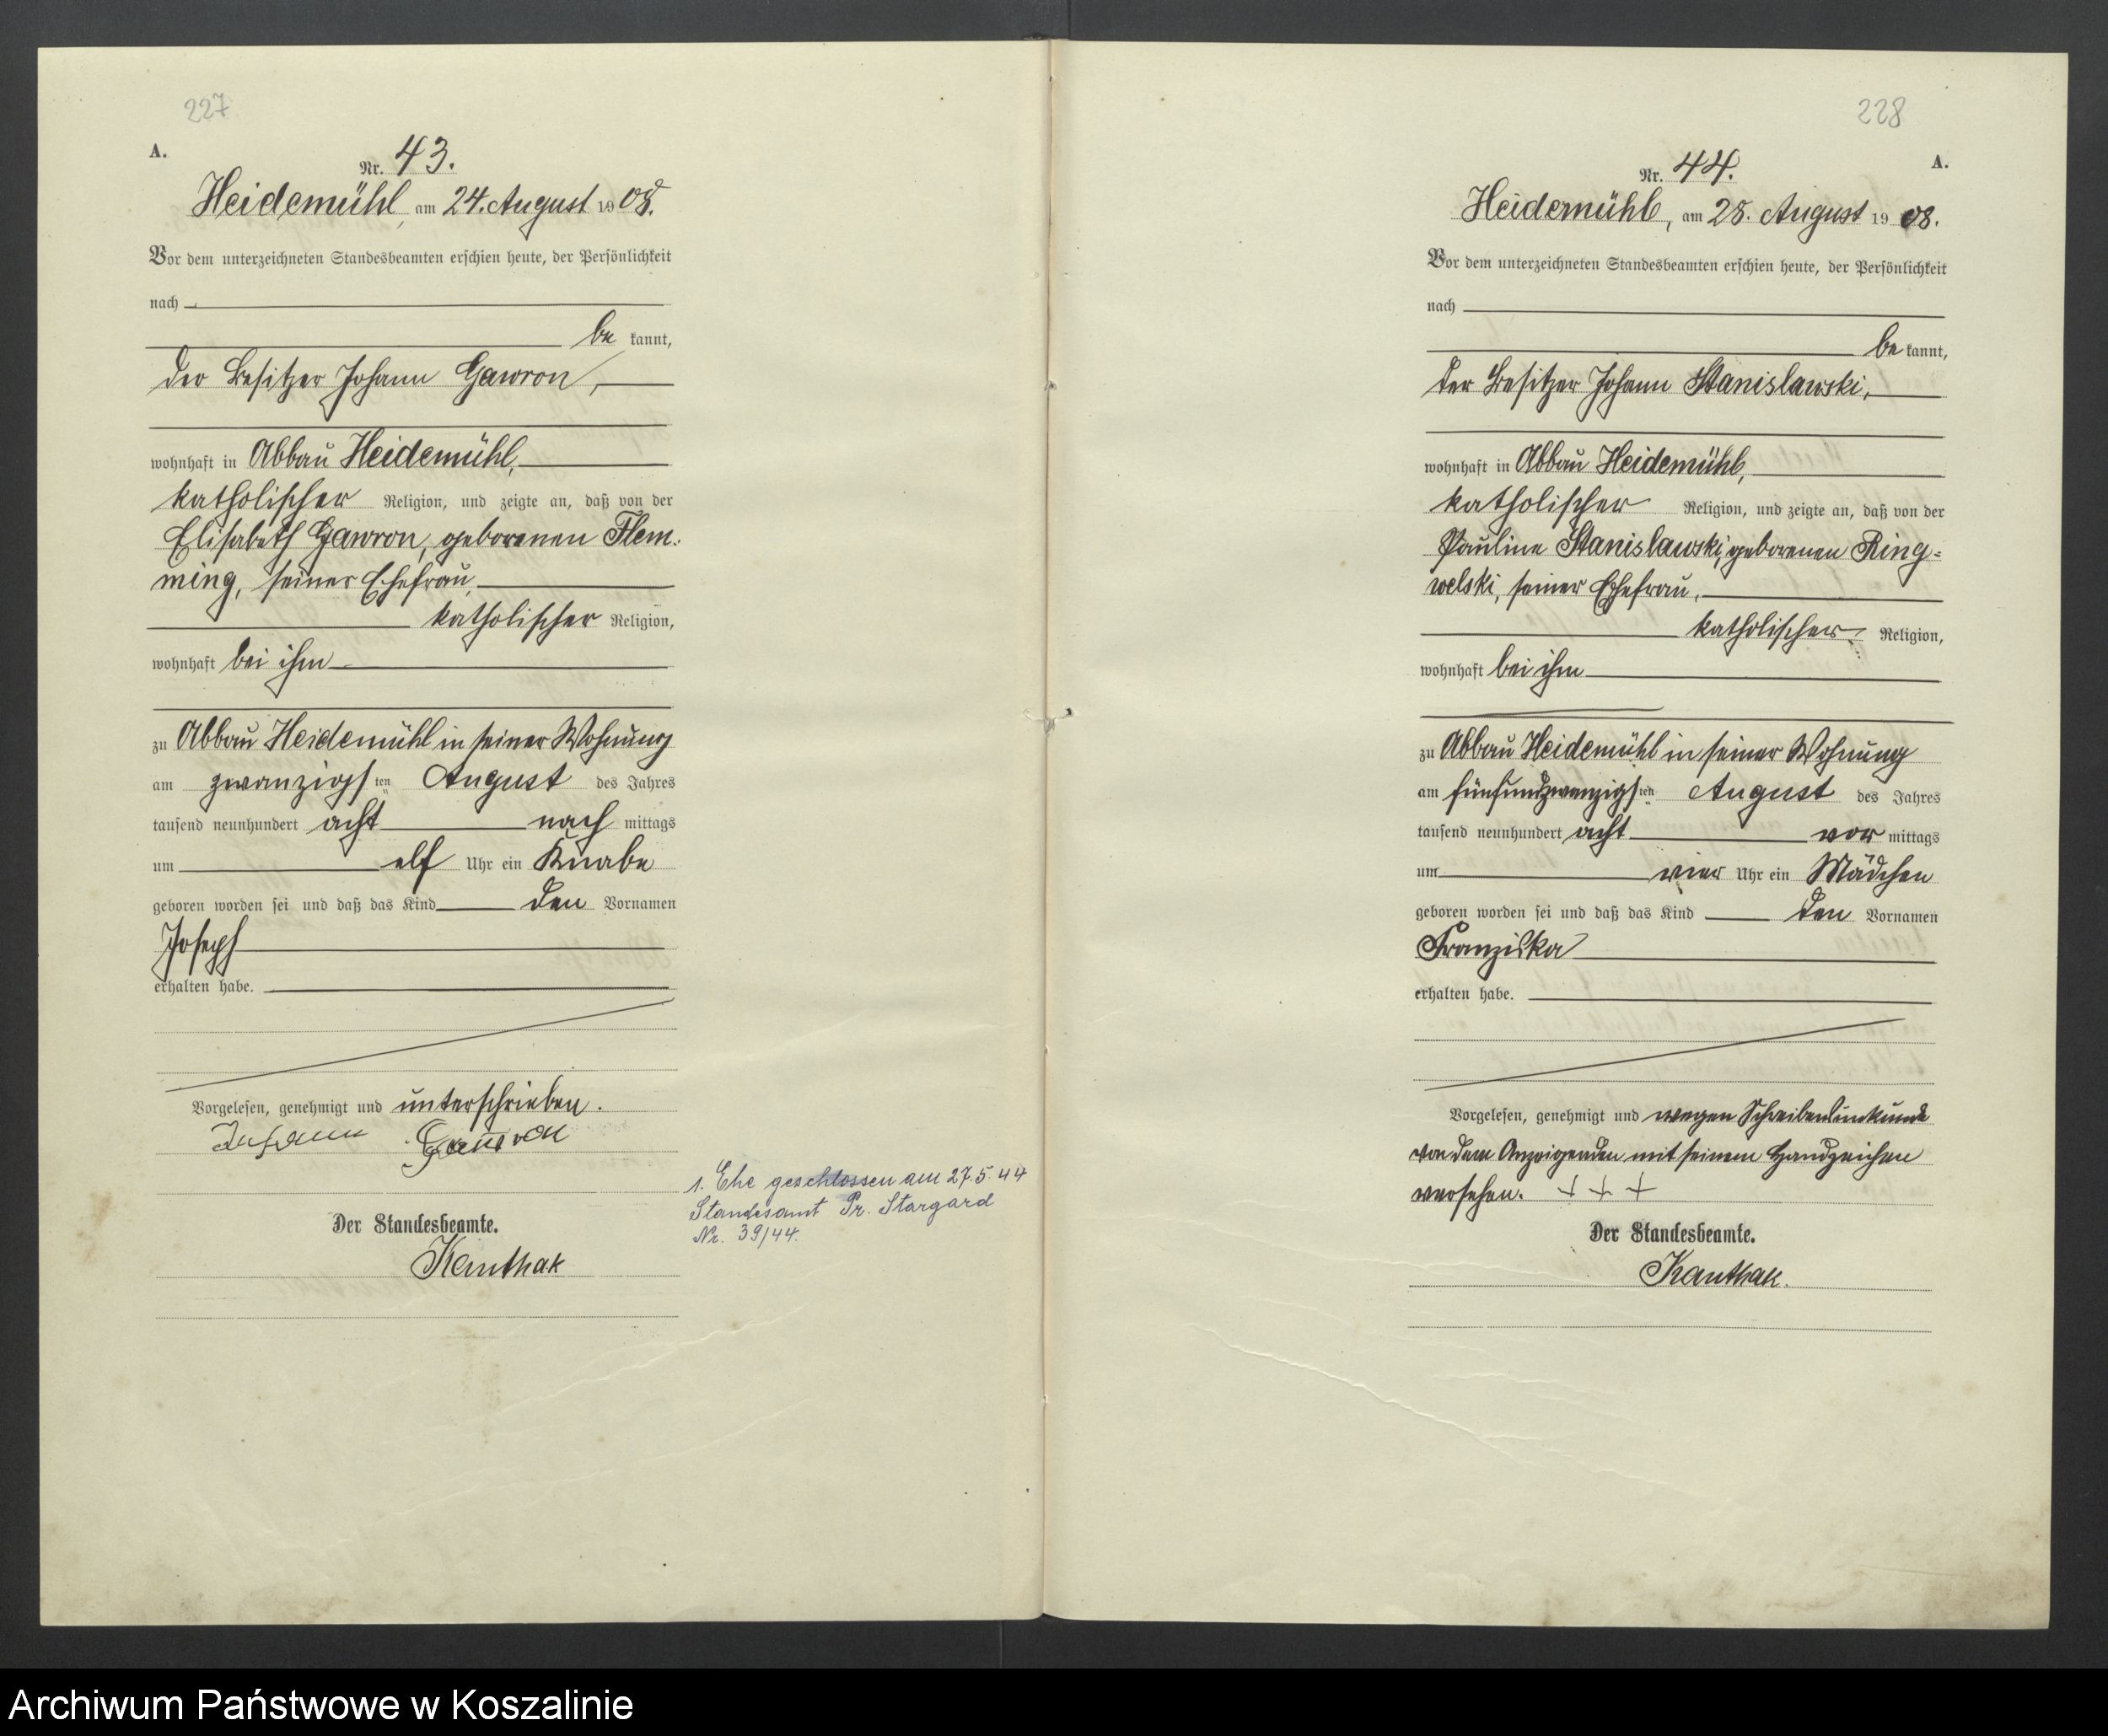 227
A.
Nr. 43.
Heidemühl, am 24. August 1908.
Vor dem unterzeichneten Standesbeamten erschien heute, der Persönlichkeit
nach
be kannt,
der Besitzer Johann Gawron,
wohnhaft in Abbau Heidemühl,
katholischer Religion, und zeigte an, daß von der
Elisabeth Gawron, geborenen Flem-
ming, seiner Ehefrau,
katholischer Religion,
wohnhaft bei ihm
zu Abbau Heidemühl in seiner Wohnung
am zwanzigsten August des Jahres
tausend neunhundert acht nach mittags
um elf Uhr ein Knabe
geboren worden sei und daß das Kind den Vornamen
Joseph
erhalten habe.
Vorgelesen, genehmigt und unterschrieben.
Johann Gawron
Der Standesbeamte.
Kanthak
1. Ehe geschlossen am 27.5.44
Standesamt Pr. Stargard
Nr. 39/44.
228
A.
Nr. 44.
Heidemühl, am 28. August 1908.
Vor dem unterzeichneten Standesbeamten erschien heute, der Persönlichkeit
nach
be kannt,
der Besitzer Johann Stanislawski,
wohnhaft in Abbau Heidemühl,
katholischer Religion, und zeigte an, daß von der
Pauline Stanislawski, geborenen Ring=
welski, seiner Ehefrau,
katholischer Religion,
wohnhaft bei ihm
zu Abbau Heidemühl in seiner Wohnung
am fünfundzwanzigsten August des Jahres
tausend neunhundert acht vor mittags
um vier Uhr ein Mädchen
geboren worden sei und daß das Kind den Vornamen
Franziska
erhalten habe.
Vorgelesen, genehmigt und wegen Schreibensunkunde
von dem Anzeigenden mit seinem Handzeichen
versehen. + + +
Der Standesbeamte.
Kanthak.
Archiwum Państwowe w Koszalinie